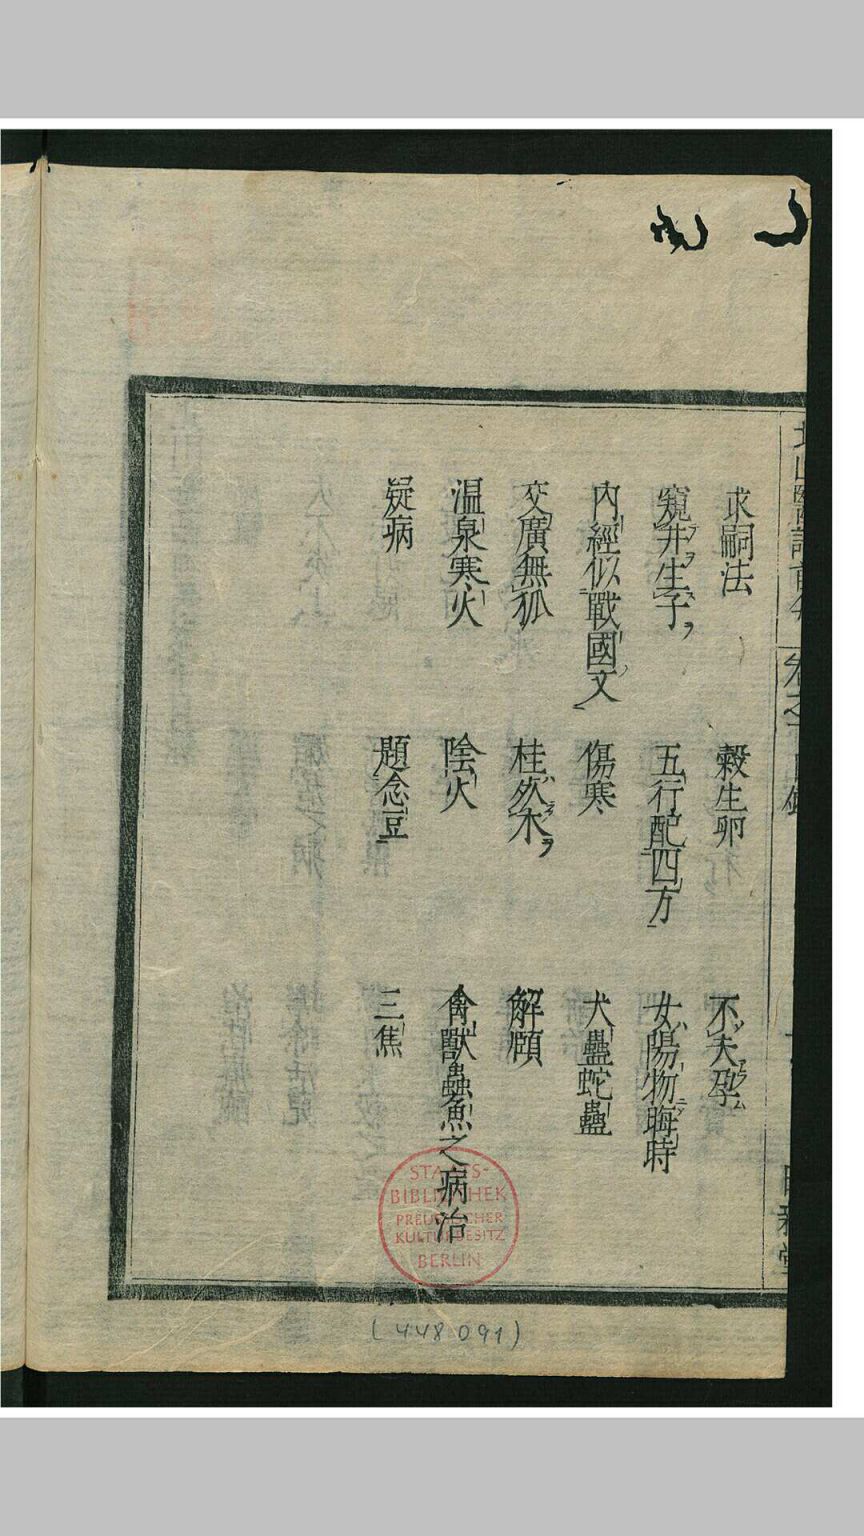 求嗣法
窺井生子
内經似戰國文
交廣無狐
温泉寒火
疑病
穀生卵
五行配四方
傷寒
桂然木
陰火
題念豆
不夫孕
女陽物晦時
犬蠱蛇蠱
解顱
禽獸蟲魚之病治
三焦
STAATS-
BIBLIOTHEK
PREUSSISCHER
KULTURBESITZ
BERLIN
(448 091)